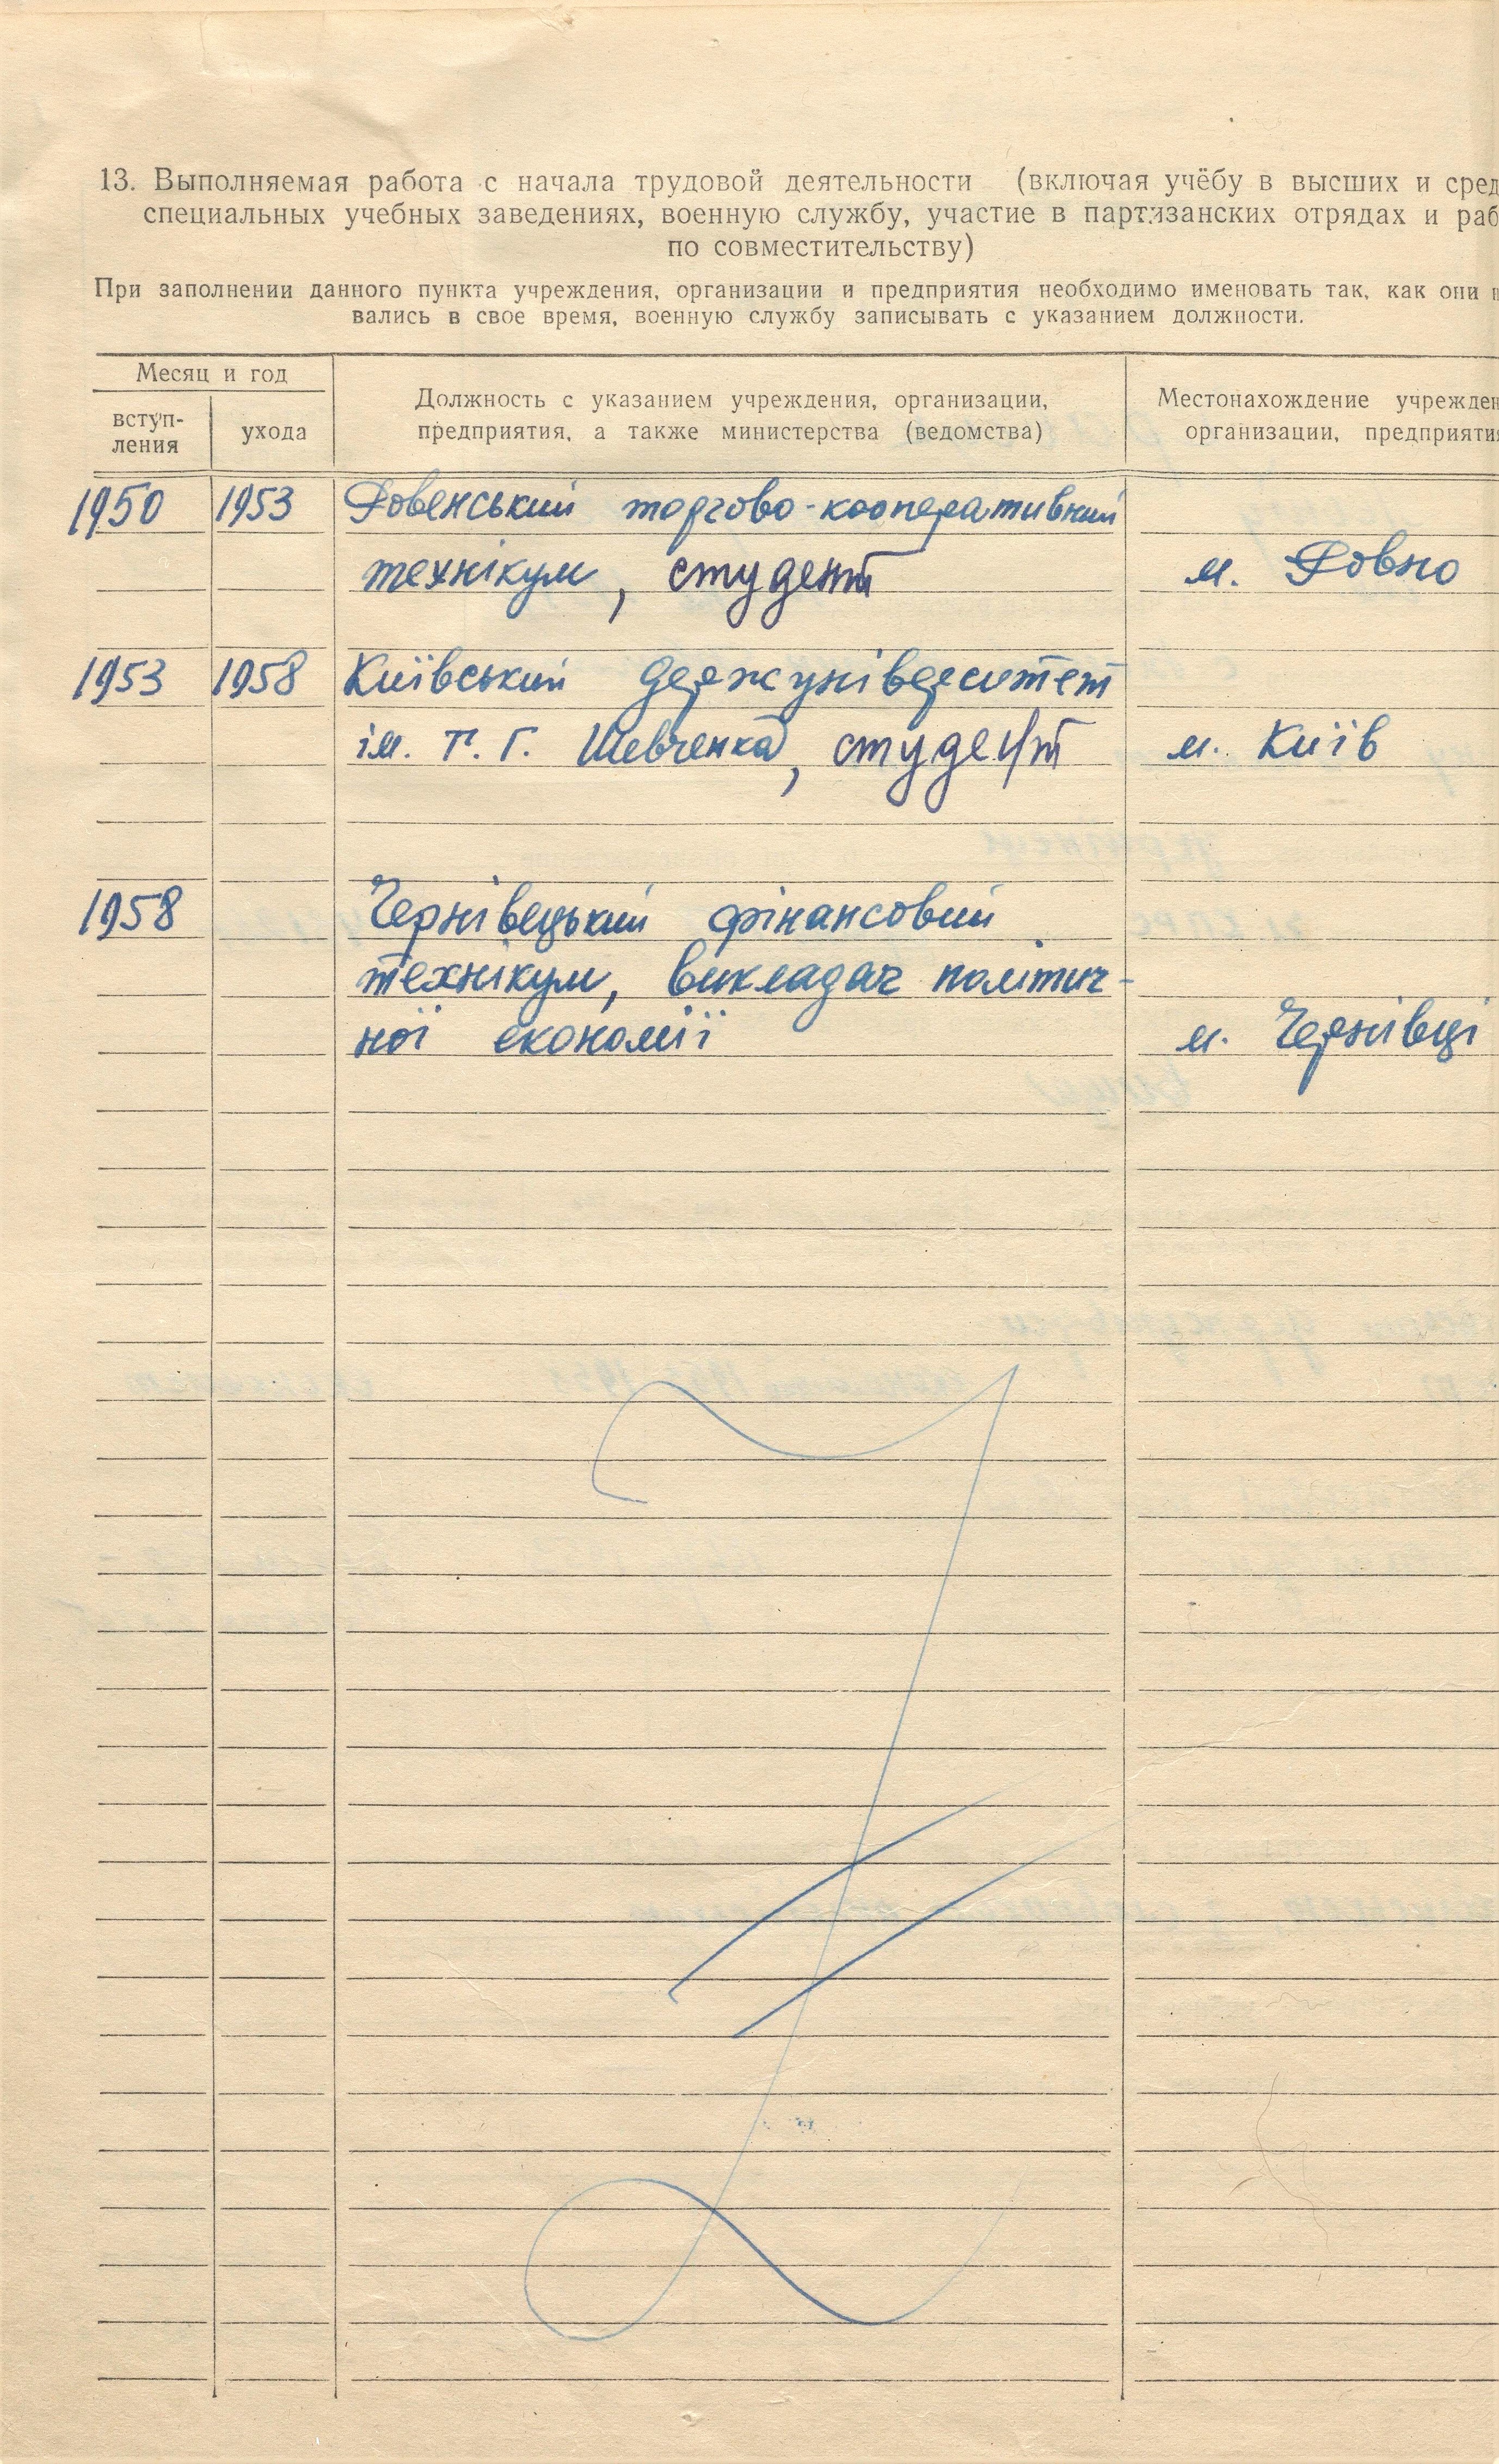 13. Выполняемая работа с начала трудовой деятельности (включая учёбу в высших и сред
специальных учебных заведениях, военную службу, участие в партизанских отрядах и раб
по совместительству)
При заполнении данного пункта учреждения, организации и предприятия необходимо именовать так, как они н
вались в свое время, военную службу записывать с указанием должности.
Месяц и год
вступ-
ления
ухода
Должность с указанием учреждения, организации,
предприятия, а также министерства (ведомства)
Местонахождение учрежден
организации, предприяти
1950 1953 Ровенський торгово-кооперативний
технікум, студент м. Ровно
1953 1958 Київський держуніверситет
ім. Т. Г. Шевченка, студент м. Київ
1958 Чернівецький фінансовий
технікум, викладач політич-
ної економії м. Чернівці